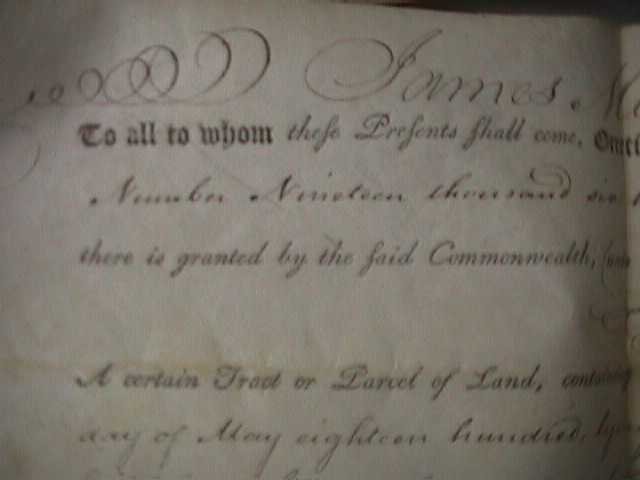 James
To all to whom these Presents shall come,
Number Nineteen thousand six
there is granted by the said Commonwealth,
A certain Tract or Parcel of Land, containing
day of May eighteen hundred,